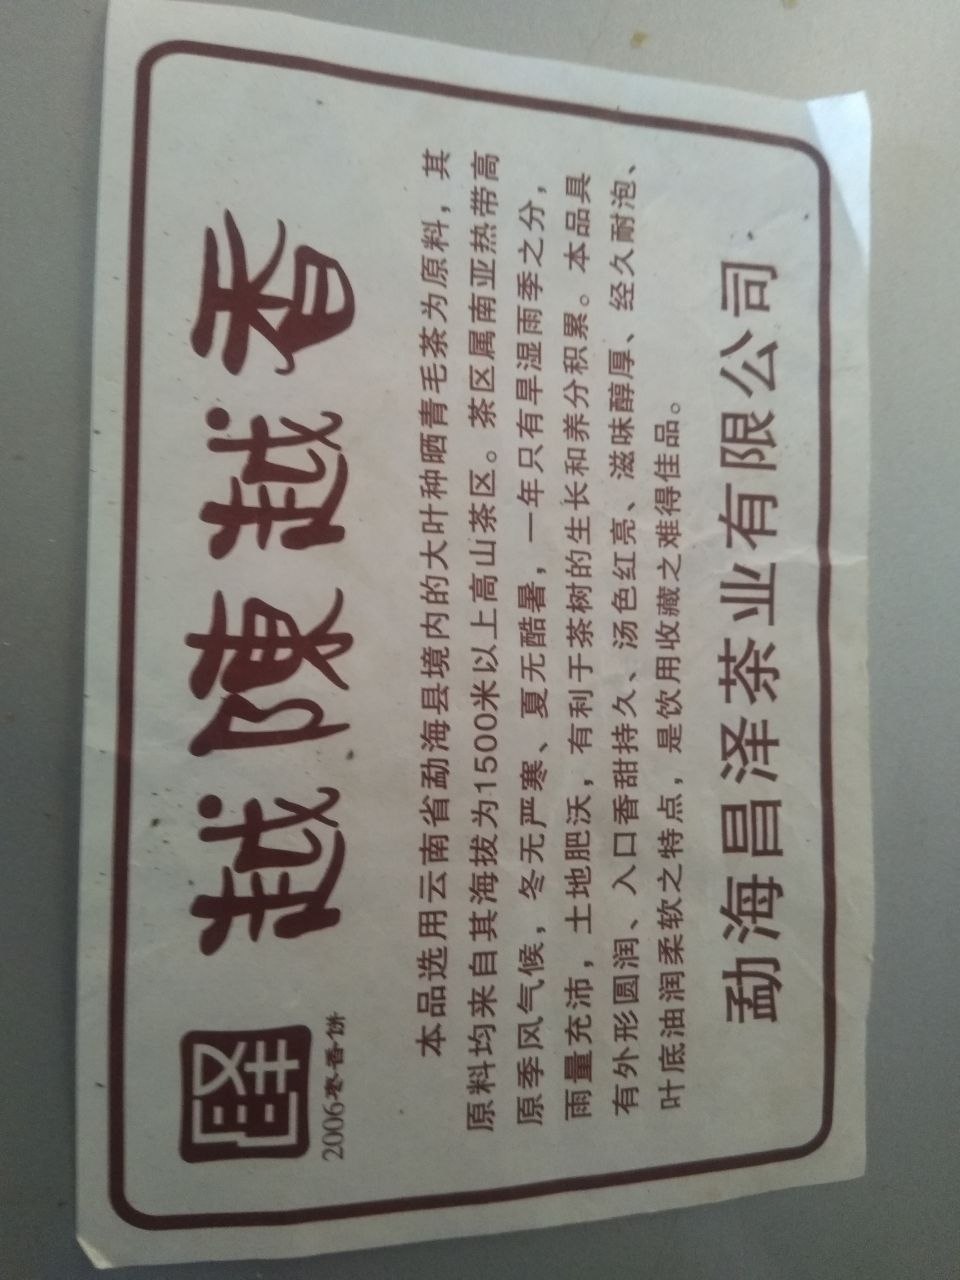 越陳越香
2006枣香饼
本品选用云南省勐海县境内的大叶种晒青毛茶为原料，其
原料均来自其海拔为1500米以上高山茶区。茶区属南亚热带高
原季风气候，冬无严寒、夏无酷暑，一年只有旱湿雨季之分，
雨量充沛，土地肥沃，有利于茶树的生长和养分积累。本品具
有外形圆润、入口香甜持久、汤色红亮、滋味醇厚、经久耐泡、
叶底油润柔软之特点，是饮用收藏之难得佳品。
勐海昌泽茶业有限公司